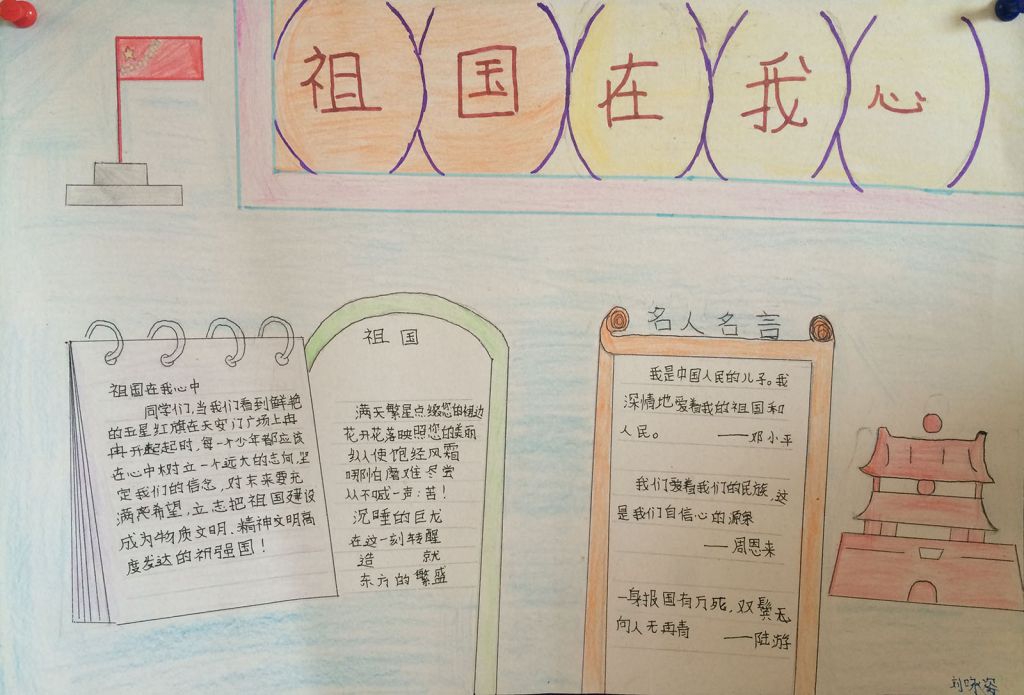 祖国在我心
祖国在我心中
同学们,当我们看到鲜艳
的五星红旗在天安门广场上冉
冉升起时,每一个少年都应该
在心中树立一个远大的志向,坚
定我们的信念,对未来要充
满希望,立志把祖国建设
成为物质文明.精神文明高
度发达的强国!
祖国
满天繁星点缀您的裙边
花开花落映照您的美丽
纵使饱经风霜
哪怕磨难尽尝
从不喊一声:苦!
沉睡的巨龙
在这一刻转醒
造 就
东方的繁盛
名人名言
我是中国人民的儿子。我
深情地爱着我的祖国和
人民。 ——邓小平
我们爱着我们的民族,这
是我们自信心的源泉
——周恩来
一身报国有万死,双鬓无
向人无再青 ——陆游
刘咏